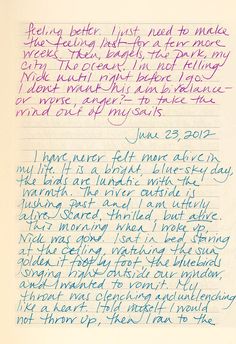 feeling better. I just need to make
the feeling last for a few more
weeks. Then, bagels, the park, my
city. The ocean. I'm not telling
Nick until right before I go.
I don't want his ambivalence–
or worse, anger?– to take the
wind out of my sails.
June 23, 2012
I have never felt more alive in
my life. It is a bright, blue-sky day,
the birds are lunatic with the
warmth. The river outside is
gushing past and I am utterly
alive. Scared, thrilled, but alive.
This morning when I woke up,
Nick was gone. I sat in bed staring
at the ceiling, watching the sun
golden it foot by foot, the bluebirds
singing right outside our window,
and I wanted to vomit. My
throat was clenching and unclenching
like a heart. I told myself I would
not throw up, then I ran to the